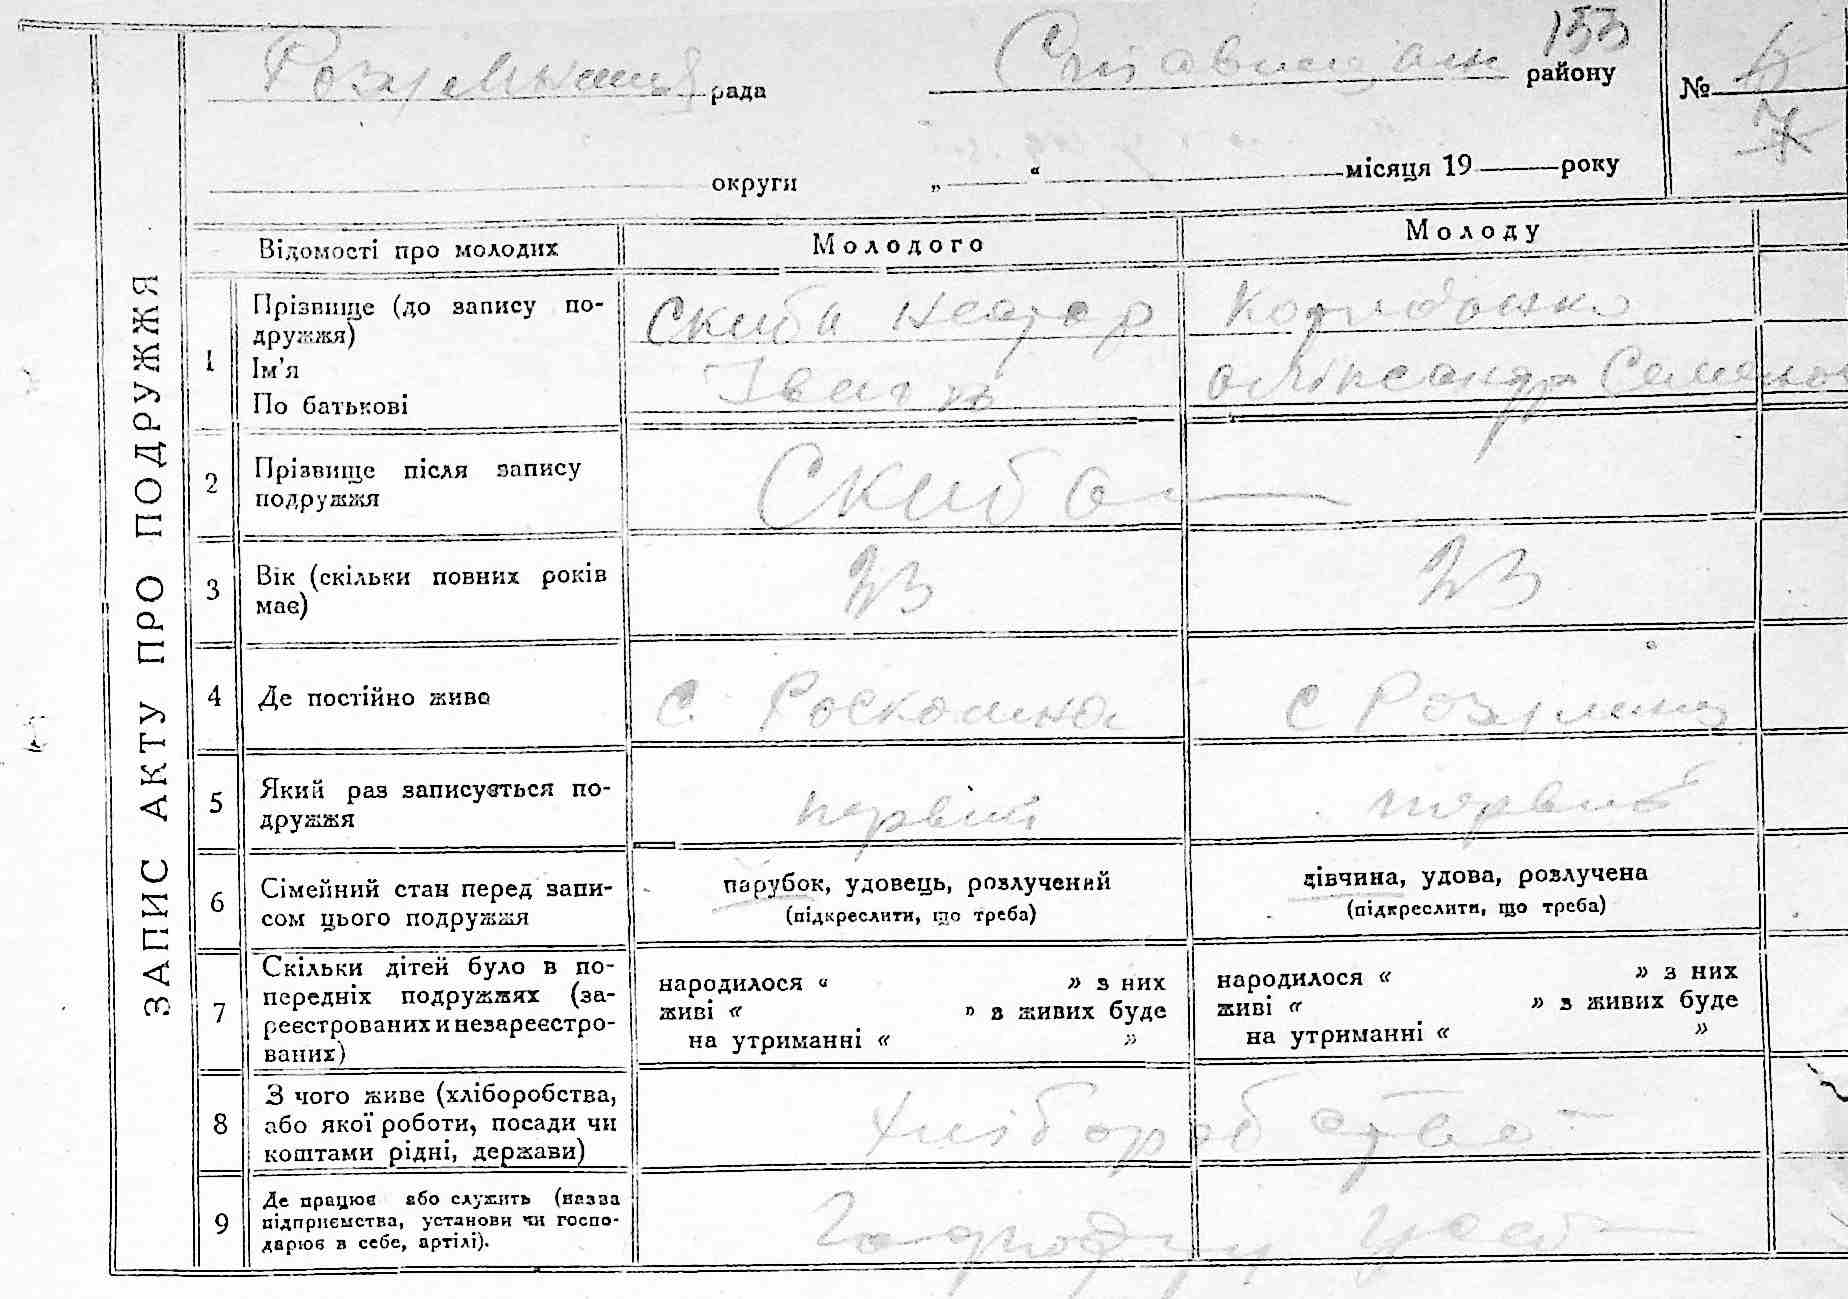 153
рада
району
№
округи „ “ місяця 19 року
ЗАПИС АКТУ ПРО ПОДРУЖЖЯ
Відомості про молодих
Молодого
Молоду
1
Прізвище (до запису по-
дружжя)
Ім’я
По батькові
Скиба
Іван
Олександра Семенов
2
Прізвище після запису
подружжя
Скиба
3
Вік (скільки повних років
має)
23
23
4
Де постійно живе
с. Роскошна
с
5
Який раз записується по-
дружжя
первий
первий
6
Сімейний стан перед запи-
сом цього подружжя
парубок, удовець, розлучений
(підкреслити, що треба)
дівчина, удова, розлучена
(підкреслити, що треба)
7
Скільки дітей було в по-
передніх подружжях (за-
реєстрованих и незареєстро-
ваних)
народилося “ ” з них
живі “ ” з живих буде
на утриманні “ ”
народилося “ ” з них
живі “ ” з живих буде
на утриманні “ ”
8
З чого живе (хліборобства,
або якої роботи, посади чи
коштами рідні, держави)
хліборобство
9
Де працює або служить (назва
підприємства, установи чи госпо-
дарює в себе, артілі).